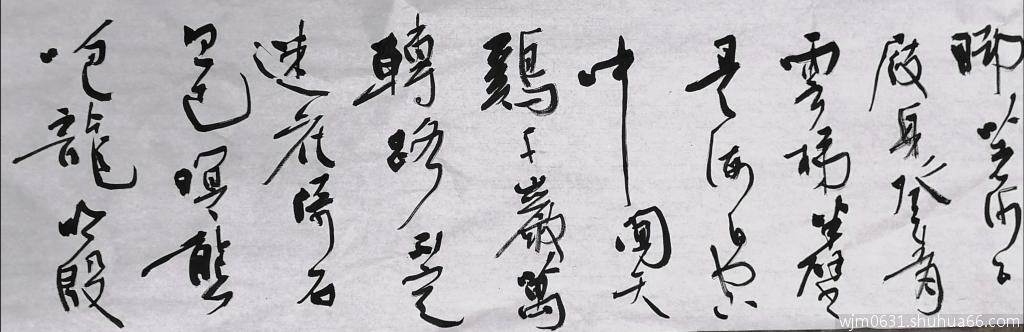 脚著谢公
屐身登青
雲梯半壁
見海日空
中聞天
鷄千巖萬
轉路不定
迷花倚石
忽已暝熊
咆龍吟殷
wjm0631.shuhua66.com